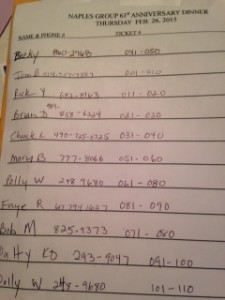 NAPLES GROUP 61st ANNIVERSARY DINNER
THURSDAY FEB. 26, 2015
NAME & PHONE # TICKET #
Becky 860-2768 041-050
Rick Y 011-020
Brian D 021-030
Chuck L 490-725-5725 031-040
Mary B 777-3066 051-060
Polly W 248 9680 061-080
Faye R 081-090
Bob M 825-9373 071-080
Patty KD 293-9047 091-100
Polly W 248-9680 101-110